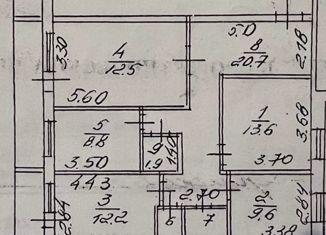 5.0
8
20.7
2.18
3.30
4
12.5
5.60
5
8.8
3.50
9
1.9
1.40
1
13.6
3.70
3.68
4.43
3
12.2
2.84
2.70
6
7
2
9.6
2.84
3.38